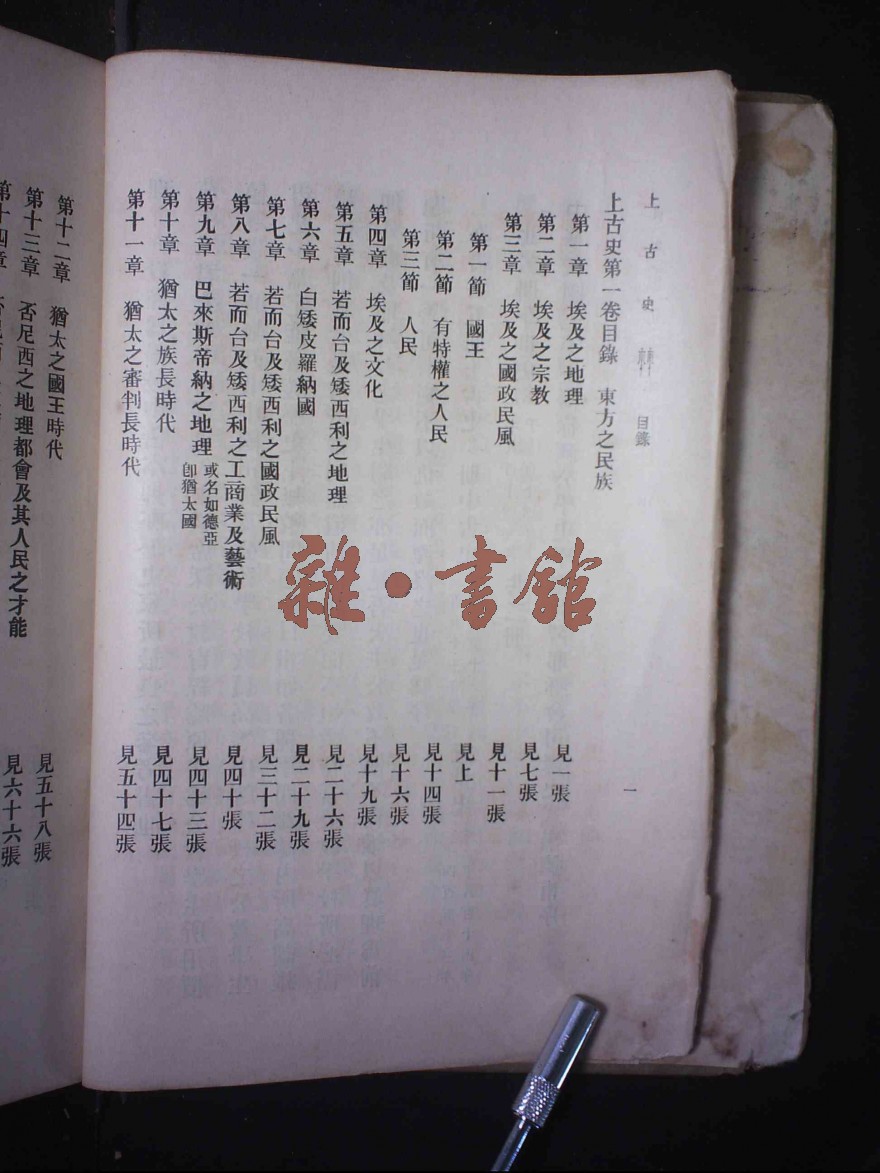 上古史 目錄 一
上古史第一卷目錄 東方之民族
第一章 埃及之地理 見一張
第二章 埃及之宗教 見七張
第三章 埃及之國政民風 見十一張
第一節 國王 見上
第二節 有特權之人民 見十四張
第三節 人民 見十六張
第四章 埃及之文化 見十九張
第五章 若而台及矮西利之地理 見二十六張
第六章 白矮皮羅納國 見二十九張
第七章 若而台及矮西利之國政民風 見三十二張
第八章 若而台及矮西利之工商業及藝術 見四十張
第九章 巴來斯帝納之地理 或名如德亞 卽猶太國 見四十三張
第十章 猶太之族長時代 見四十七張
第十一章 猶太之審判長時代 見五十四張
第十二章 猶太之國王時代 見五十八張
第十三章 否尼西之地理都會及其人民之才能 見六十六張
第十四章
雜·書館